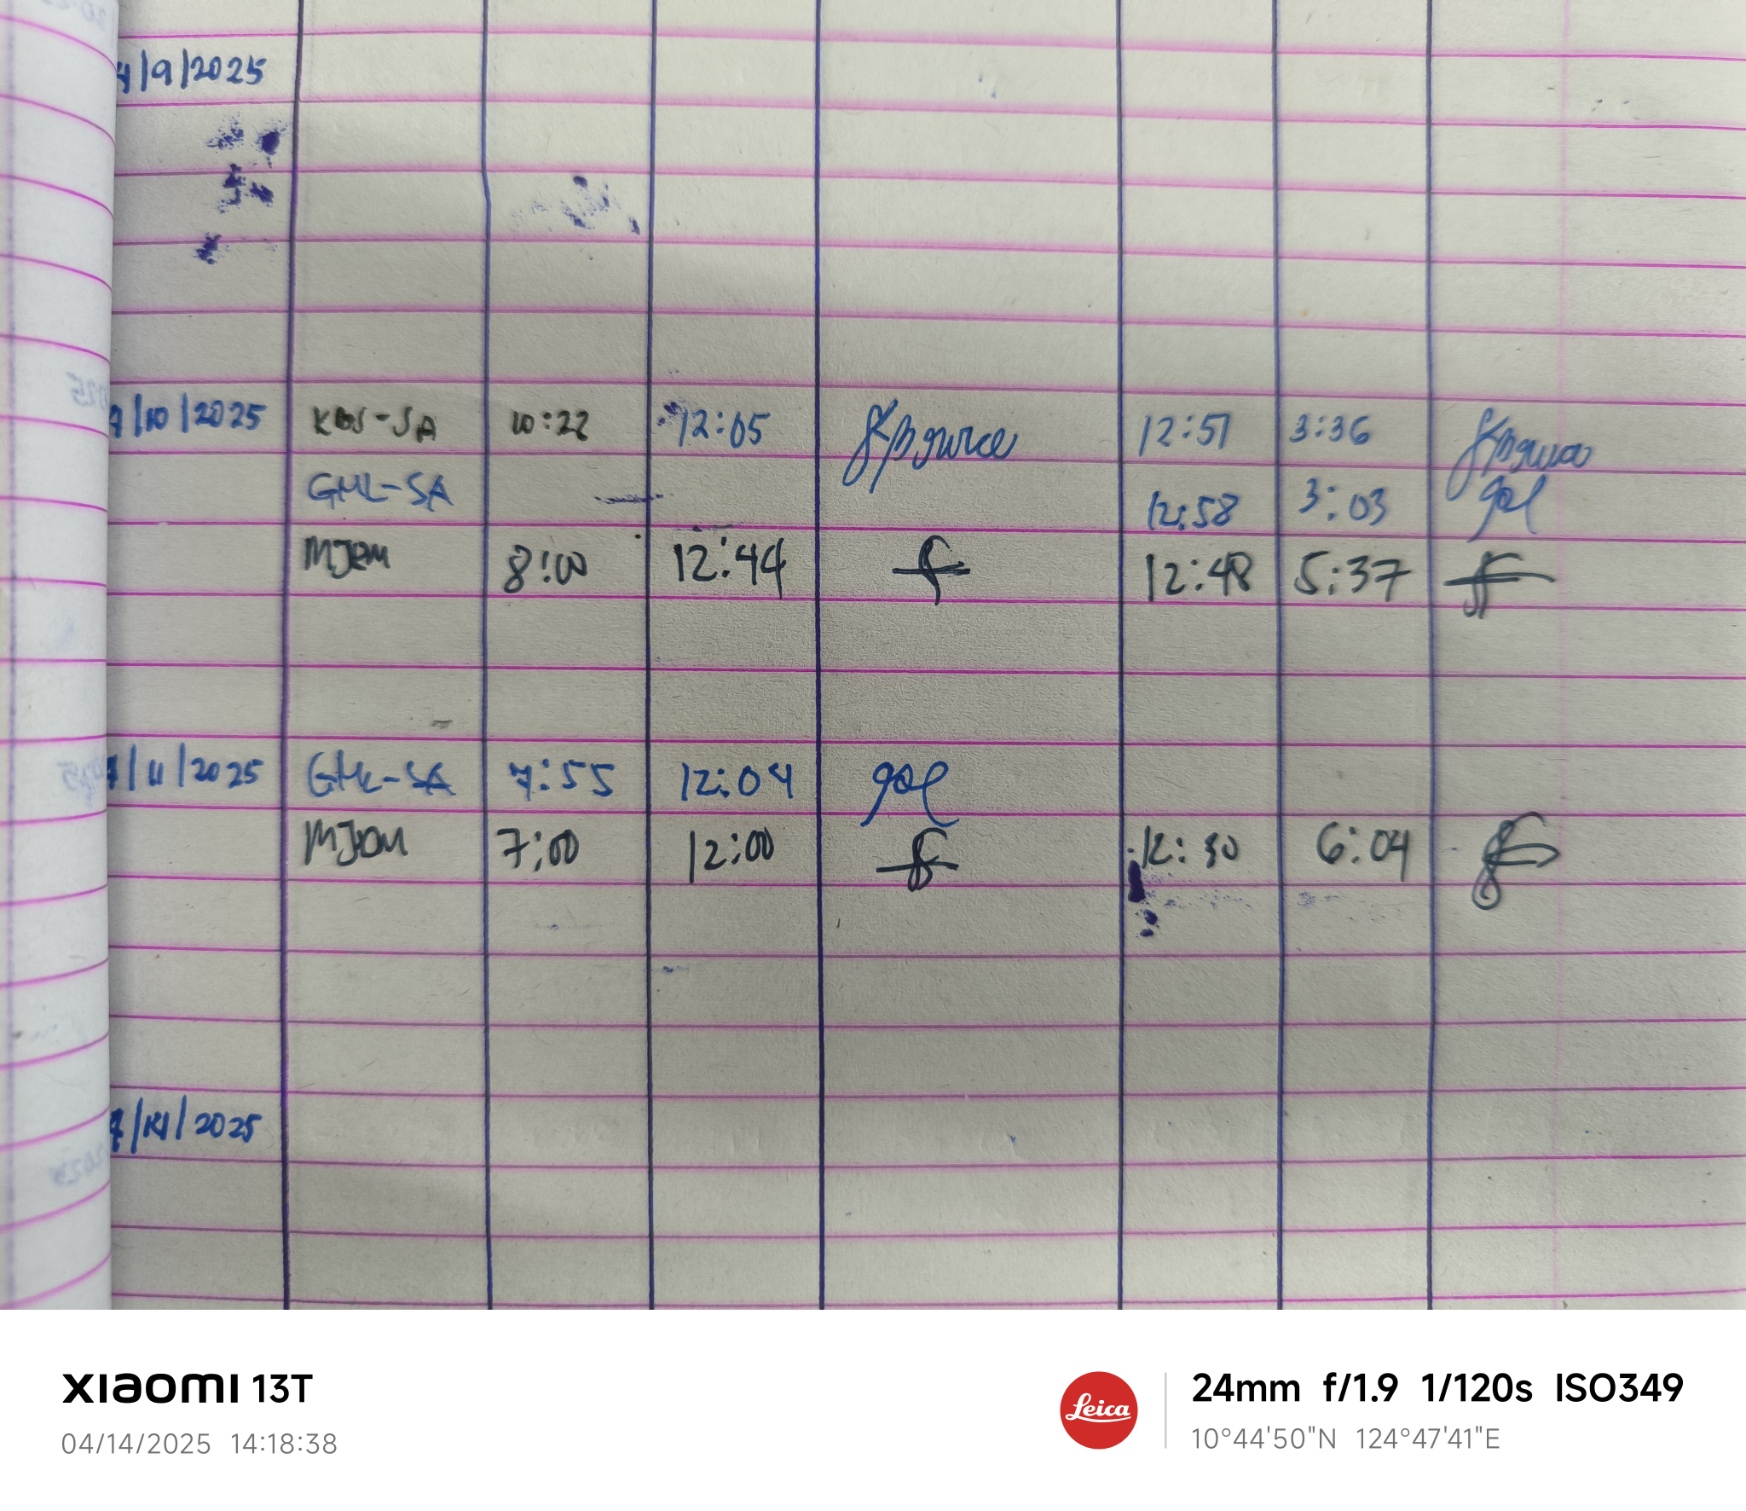 4/9/2025
4/10/2025 KBS-SA 10:22 12:05 12:51 3:36
GHL-SA 12:58 3:03
MJBM 8:00 12:44 12:48 5:37
4/11/2025 GHL-SA 7:55 12:04
MJBM 7:00 12:00 12:30 6:04
/2025
XIAOMI 13T
04/14/2025 14:18:38
Leica
24mm f/1.9 1/120s ISO349
10°44'50"N 124°47'41"E